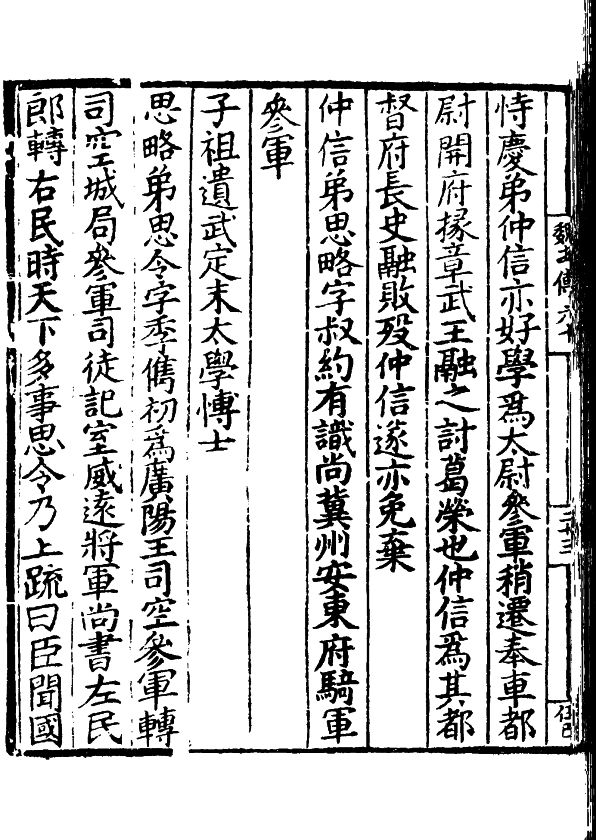 魏書傳六十
二十三
任己
恃慶弟仲信亦好學爲太尉參軍稍遷奉車都
尉開府掾章武王融之討葛榮也仲信爲其都
督府長史融敗殁仲信遂亦免棄
仲信弟思略字叔約有識尚冀州安東府騎軍
參軍
子祖遺武定末太學愽士
思略弟思令字季儁初爲廣陽王司空參軍轉
司空城局參軍司徒記室威遠將軍尚書左民
郎轉右民時天下多事思令乃上䟽曰臣聞國